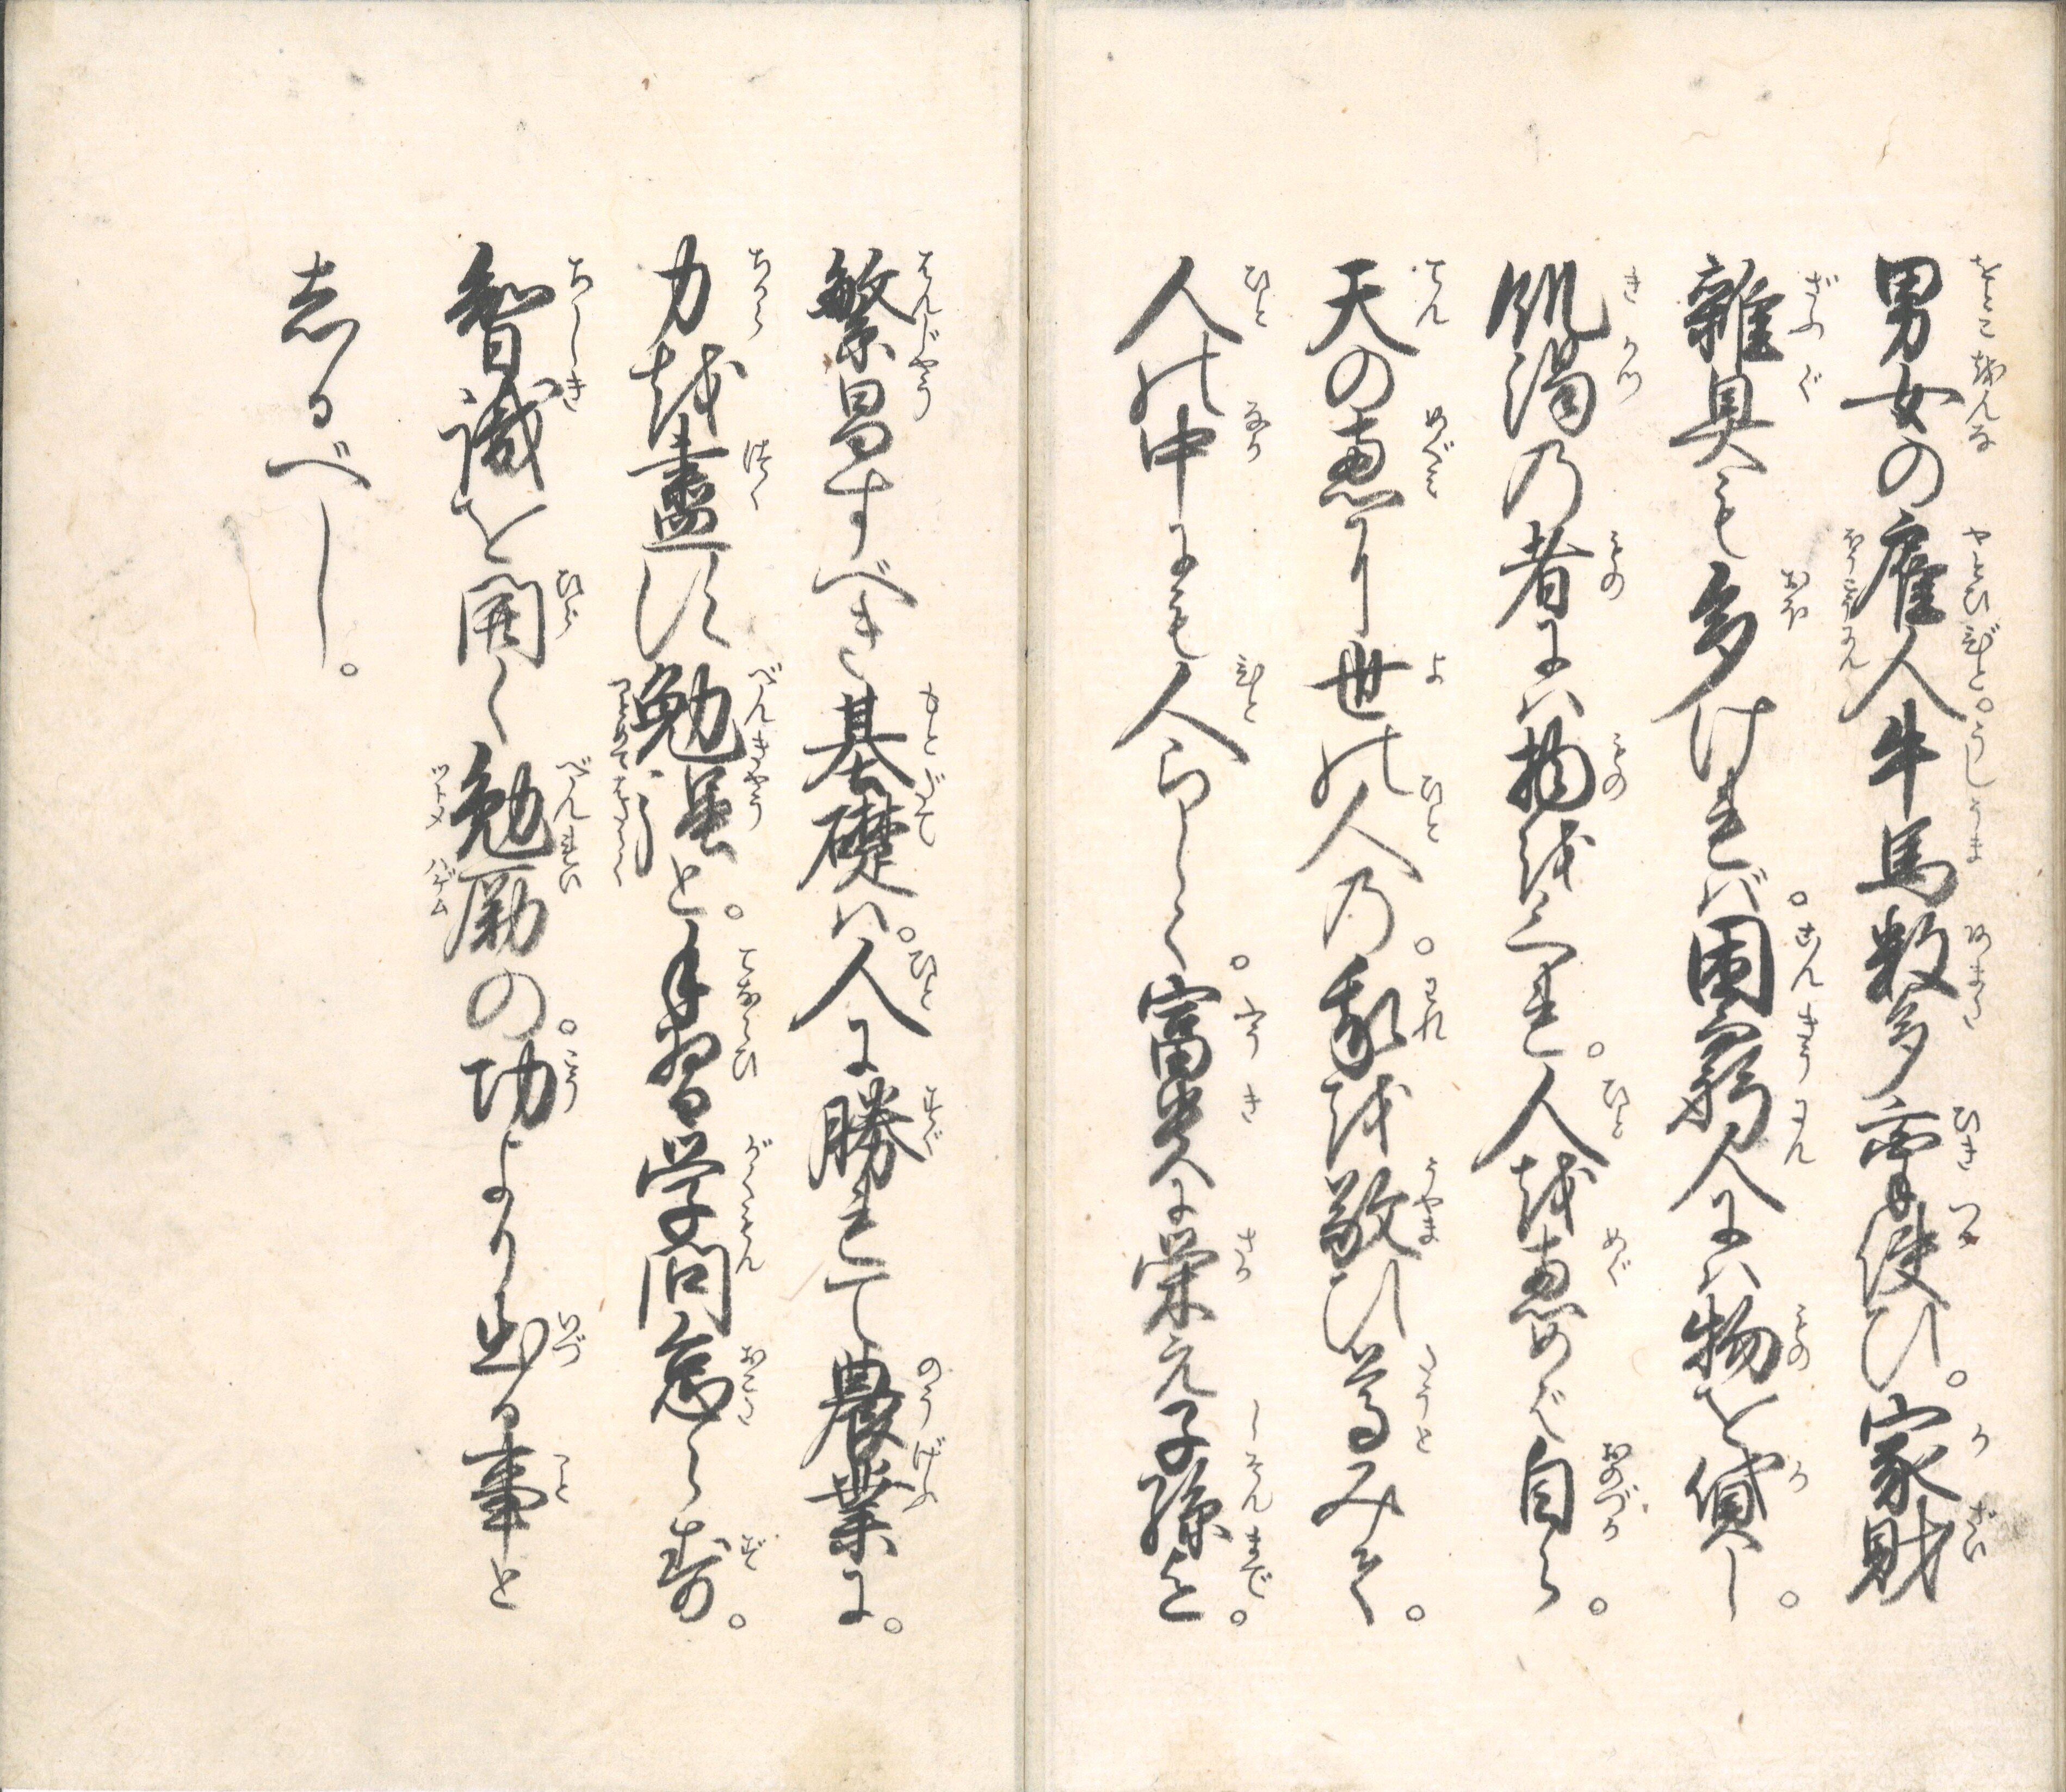 男女の雇人牛馬数多牽使ひ。家財
雑具も多ければ。困窮人には物を貸し。
飢渇の者には物を与れ。人を恵めば自ら。
天の恵り世の人の。我を敬ひ尊みて。
人の中にも人らしく。富貴に栄え子孫迄。
繁昌すべき基礎は。人に勝れて農業に。
力を盡し勉強と。手習学問怠らず。
智識を開く勉励の。功より出る事と
志るべし。